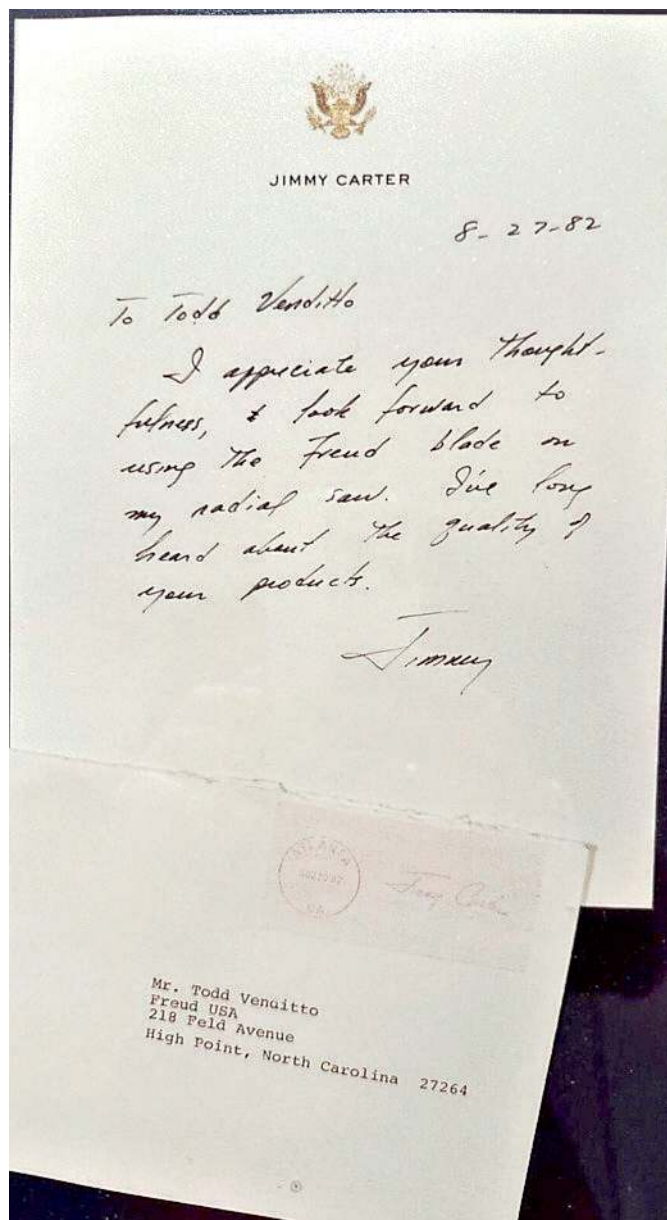 JIMMY CARTER
8-27-82
To Todd Venditto
I appreciate your thought-
fulness, & look forward to
using the Freud blade on
my radial saw. I've long
heard about the quality of
your products.
Jimmy
ATLANTA
GA
Jimmy Carter
Mr. Todd Venditto
Freud USA
218 Feld Avenue
High Point, North Carolina 27264